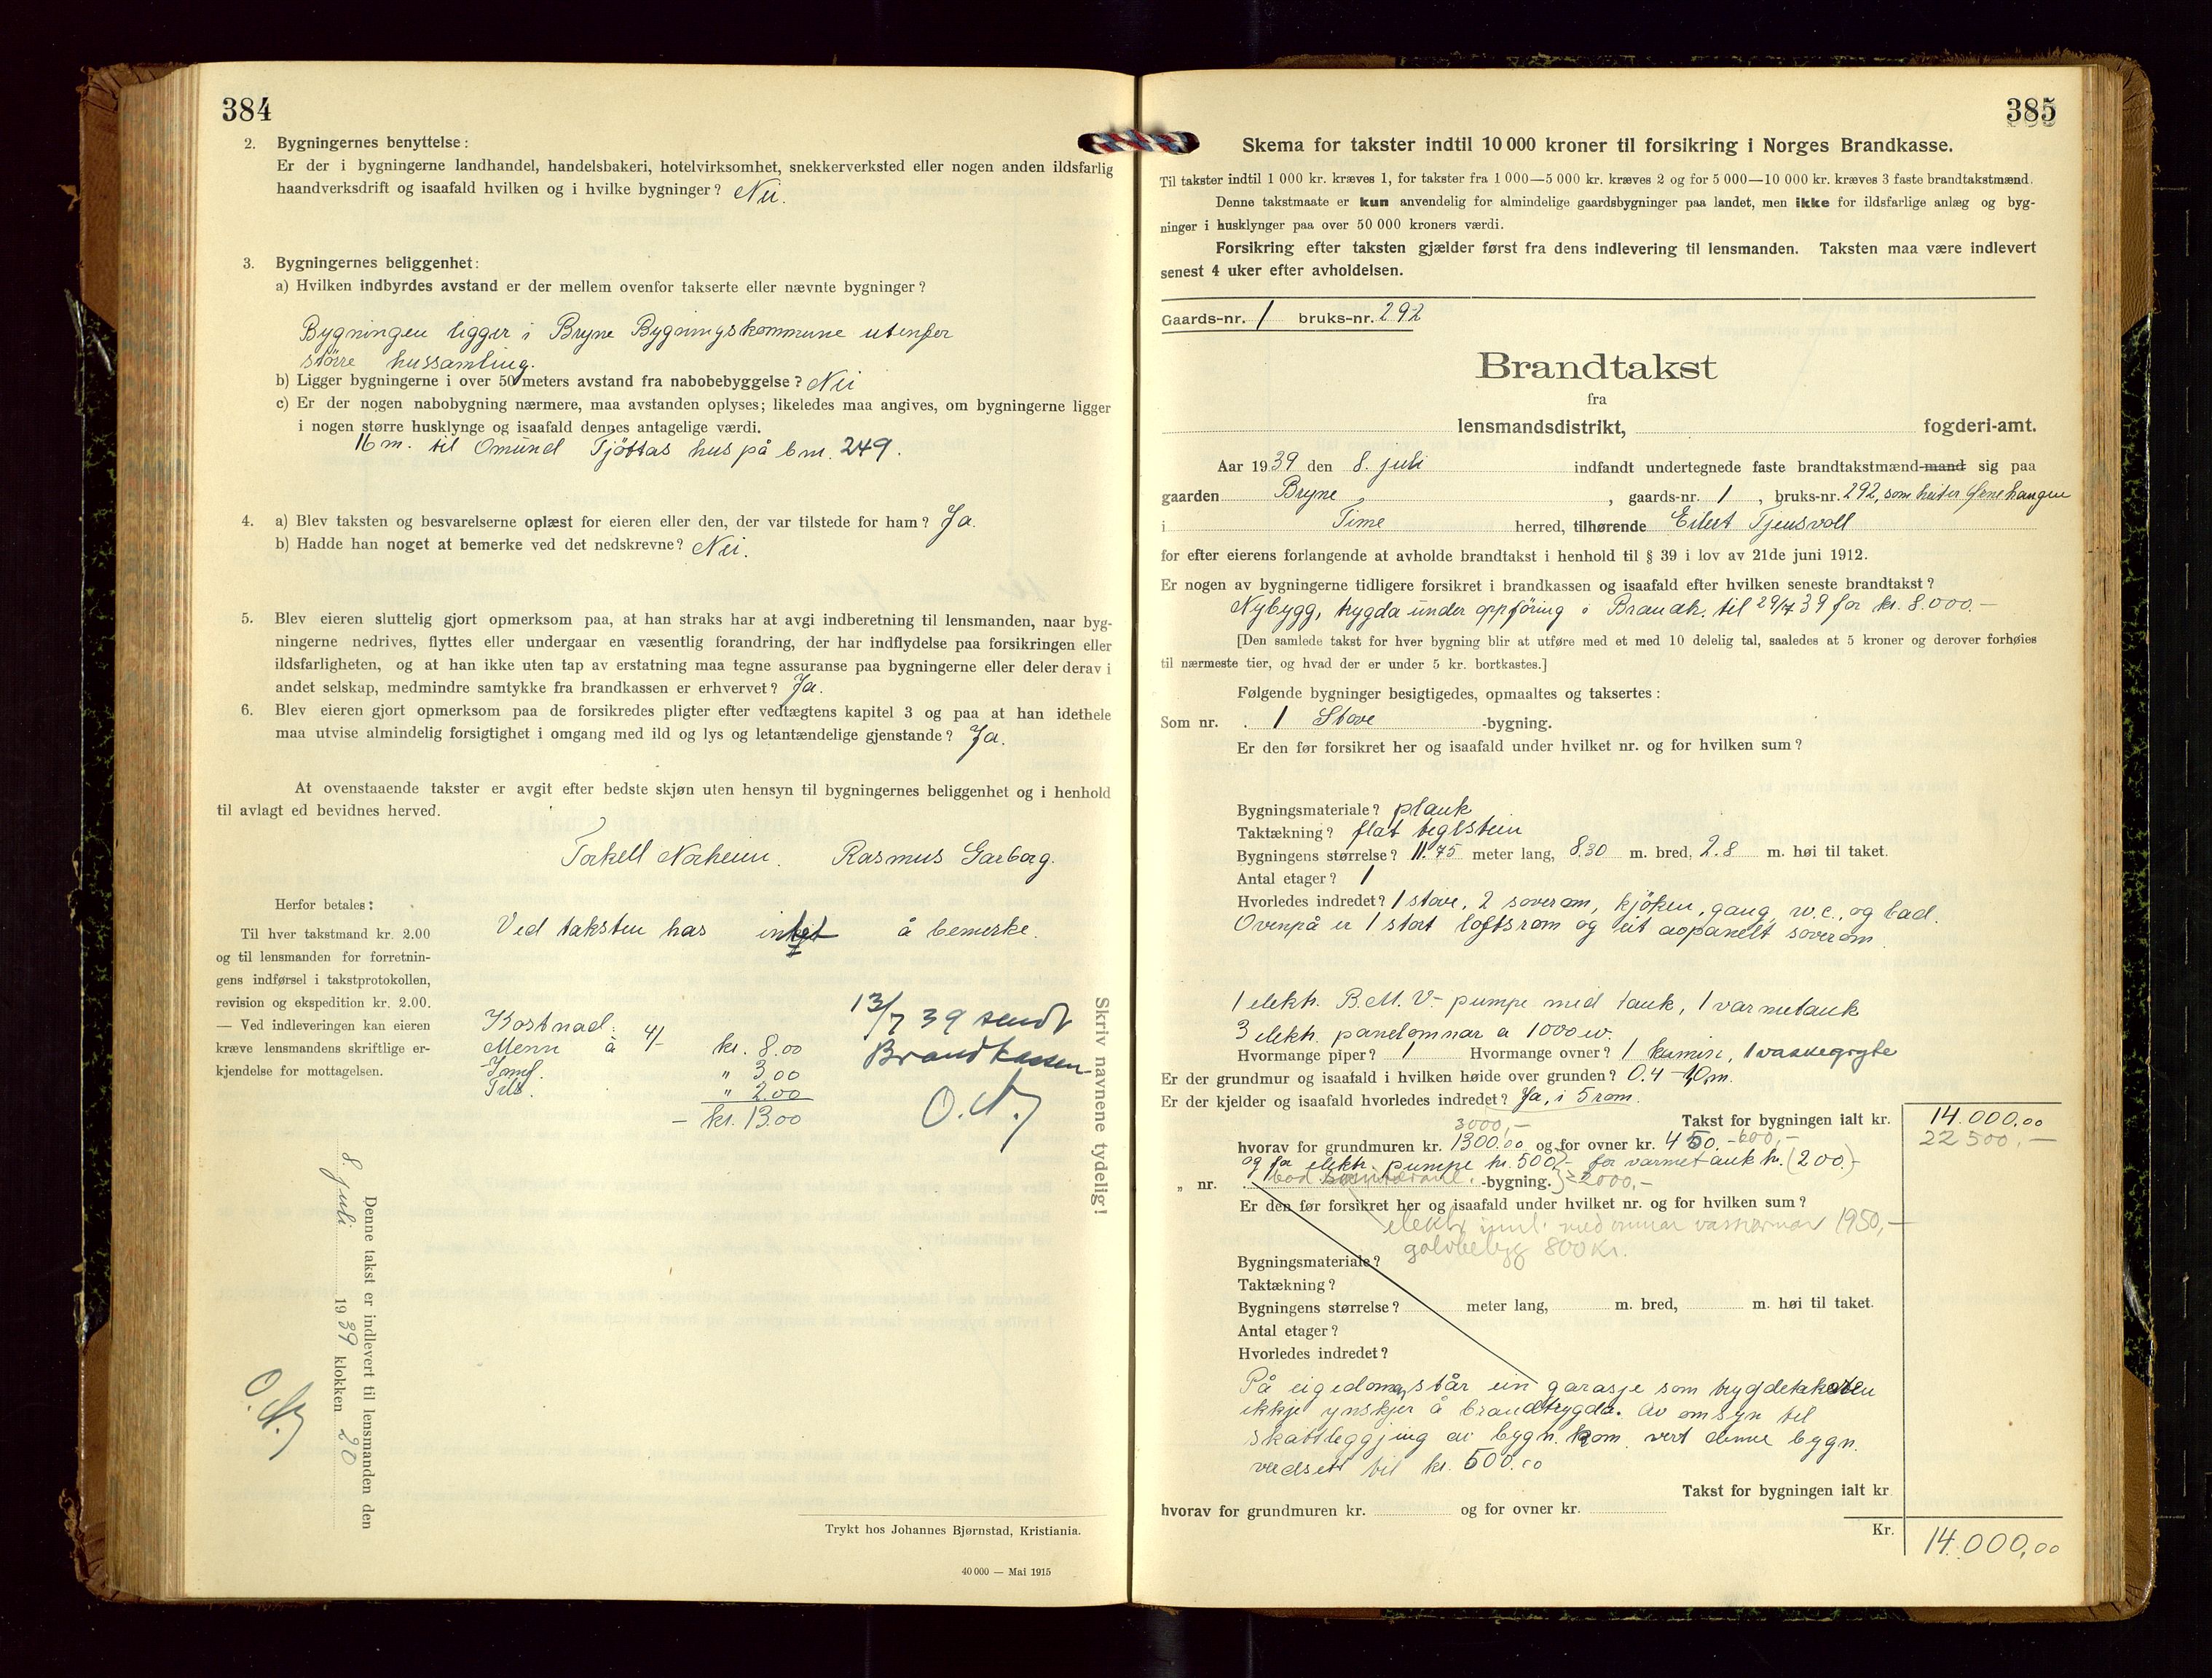 384
2. Bygningernes benyttelse:
Er der i bygningerne landhandel, handelsbakeri, hotelvirksomhet, snekkerverksted eller nogen anden ildsfarlig
haandverksdrift og isaafald hvilken og i hvilke bygninger? Nei.
3. Bygningernes beliggenhet:
a) Hvilken indbyrdes avstand er der mellem ovenfor takserte eller nævnte bygninger?
Bygningen ligger i Bryne Bygningskommune utenfor
större hussamling.
b) Ligger bygningerne i over 50 meters avstand fra nabobebyggelse? Nei
c) Er der nogen nabobygning nærmere, maa avstanden oplyses; likeledes maa angives, om bygningerne ligger
i nogen større husklynge og isaafald dennes antagelige værdi.
16 m. til Omund Tjöttas hus på bnr. 249.
4. a) Blev taksten og besvarelserne oplæst for eieren eller den, der var tilstede for ham? Ja.
b) Hadde han noget at bemerke ved det nedskrevne? Nei.
5. Blev eieren sluttelig gjort opmerksom paa, at han straks har at avgi indberetning til lensmanden, naar byg-
ningerne nedrives, flyttes eller undergaar en væsentlig forandring, der har indflydelse paa forsikringen eller
ildsfarligheten, og at han ikke uten tap av erstatning maa tegne assuranse paa bygningerne eller deler derav i
andet selskap, medmindre samtykke fra brandkassen er erhvervet? Ja.
6. Blev eieren gjort opmerksom paa de forsikredes pligter efter vedtægtens kapitel 3 og paa at han idethele
maa utvise almindelig forsigtighet i omgang med ild og lys og letantændelige gjenstande? Ja.
At ovenstaaende takster er avgit efter bedste skjøn uten hensyn til bygningernes beliggenhet og i henhold
til avlagt ed bevidnes herved.
Torkell Norheim. Rasmus Garborg.
Herfor betales:
Til hver takstmand kr. 2.00
og til lensmanden for forretnin-
gens indførsel i takstprotokollen,
revision og ekspedition kr. 2.00.
— Ved indleveringen kan eieren
kræve lensmandens skriftlige er-
kjendelse for mottagelsen.
Ved taksten has intet å bemerke.
Kostnad:
Menn à 4/- kr. 8.00
Innf. " 3.00
" 2.00
- kr. 13.00
13/7 39 sendt
Brandkassen
Skriv navnene tydelig!
Denne takst er indlevert til lensmanden den
8. juli 1939 klokken 20
Trykt hos Johannes Bjørnstad, Kristiania.
40 000 — Mai 1915
385
Skema for takster indtil 10 000 kroner til forsikring i Norges Brandkasse.
Til takster indtil 1 000 kr. kræves 1, for takster fra 1 000—5 000 kr. kræves 2 og for 5 000—10 000 kr. kræves 3 faste brandtakstmænd.
Denne takstmaate er kun anvendelig for almindelige gaardsbygninger paa landet, men ikke for ildsfarlige anlæg og byg-
ninger i husklynger paa over 50 000 kroners værdi.
Forsikring efter taksten gjælder først fra dens indlevering til lensmanden. Taksten maa være indlevert
senest 4 uker efter avholdelsen.
Gaards-nr. 1 bruks-nr. 292
Brandtakst
fra
lensmandsdistrikt, fogderi-amt.
Aar 1939 den 8. juli indfandt undertegnede faste brandtakstmænd-mand sig paa
gaarden Bryne, gaards-nr. 1, bruks-nr. 292, som heiter Ørnehaugen
i Time herred, tilhørende Eilert Tjensvoll
for efter eierens forlangende at avholde brandtakst i henhold til § 39 i lov av 21de juni 1912.
Er nogen av bygningerne tidligere forsikret i brandkassen og isaafald efter hvilken seneste brandtakst?
Nybygg, trygda under oppföring i Brandk. til 29/7 39 for kr. 8.000.-
[Den samlede takst for hver bygning blir at utføre med et med 10 delelig tal, saaledes at 5 kroner og derover forhøies
til nærmeste tier, og hvad der er under 5 kr. bortkastes.]
Følgende bygninger besigtigedes, opmaaltes og taksertes:
Som nr. 1 Stove -bygning.
Er den før forsikret her og isaafald under hvilket nr. og for hvilken sum?
Bygningsmateriale? plank
Taktækning? flat teglstein
Bygningens størrelse? 11.75 meter lang, 8.30 m. bred, 2.8 m. høi til taket.
Antal etager? 1
Hvorledes indredet? 1 stove, 2 soverom, kjöken, gang, w.c., og bad.
Ovenpå er 1 stort loftsrom og eit aopanelt soverom.
1 elektr. B.M.V- pumpe med tank, 1 varmetank
3 elektr. panelomnar a 1000 w.
Hvormange piper? 1 Hvormange ovner? 1 kamin, 1 vaskegryte
Er der grundmur og isaafald i hvilken høide over grunden? 0.4 - 1,0 m.
Er der kjelder og isaafald hvorledes indredet? Ja, i 5 rom.
Takst for bygningen ialt kr. 14.000,00
3000,- 22 500,-
hvorav for grundmuren kr. 1300.00 og for ovner kr. 450.- 600,-
og for elektr. pumpe kr. 500,- for varmetank kr. (200.-
„ nr. bad -bygning. = 2000,-
Er den før forsikret her og isaafald under hvilket nr. og for hvilken sum?
elektr innl. med omnar 1950,-
golvbelegg 800 kr.
Bygningsmateriale?
Taktækning?
Bygningens størrelse? meter lang, m. bred, m. høi til taket.
Antal etager?
Hvorledes indredet?
På eigedomen står ein garasje som trygdetakaren
ikkje ynskjer å brandtrygda. Av omsyn til
skattleggjing av bygn. kom. vert denne bygn.
verdsett til kr. 500.00
Takst for bygningen ialt kr
hvorav for grundmuren kr. og for ovner kr.
Kr. 14.000,00